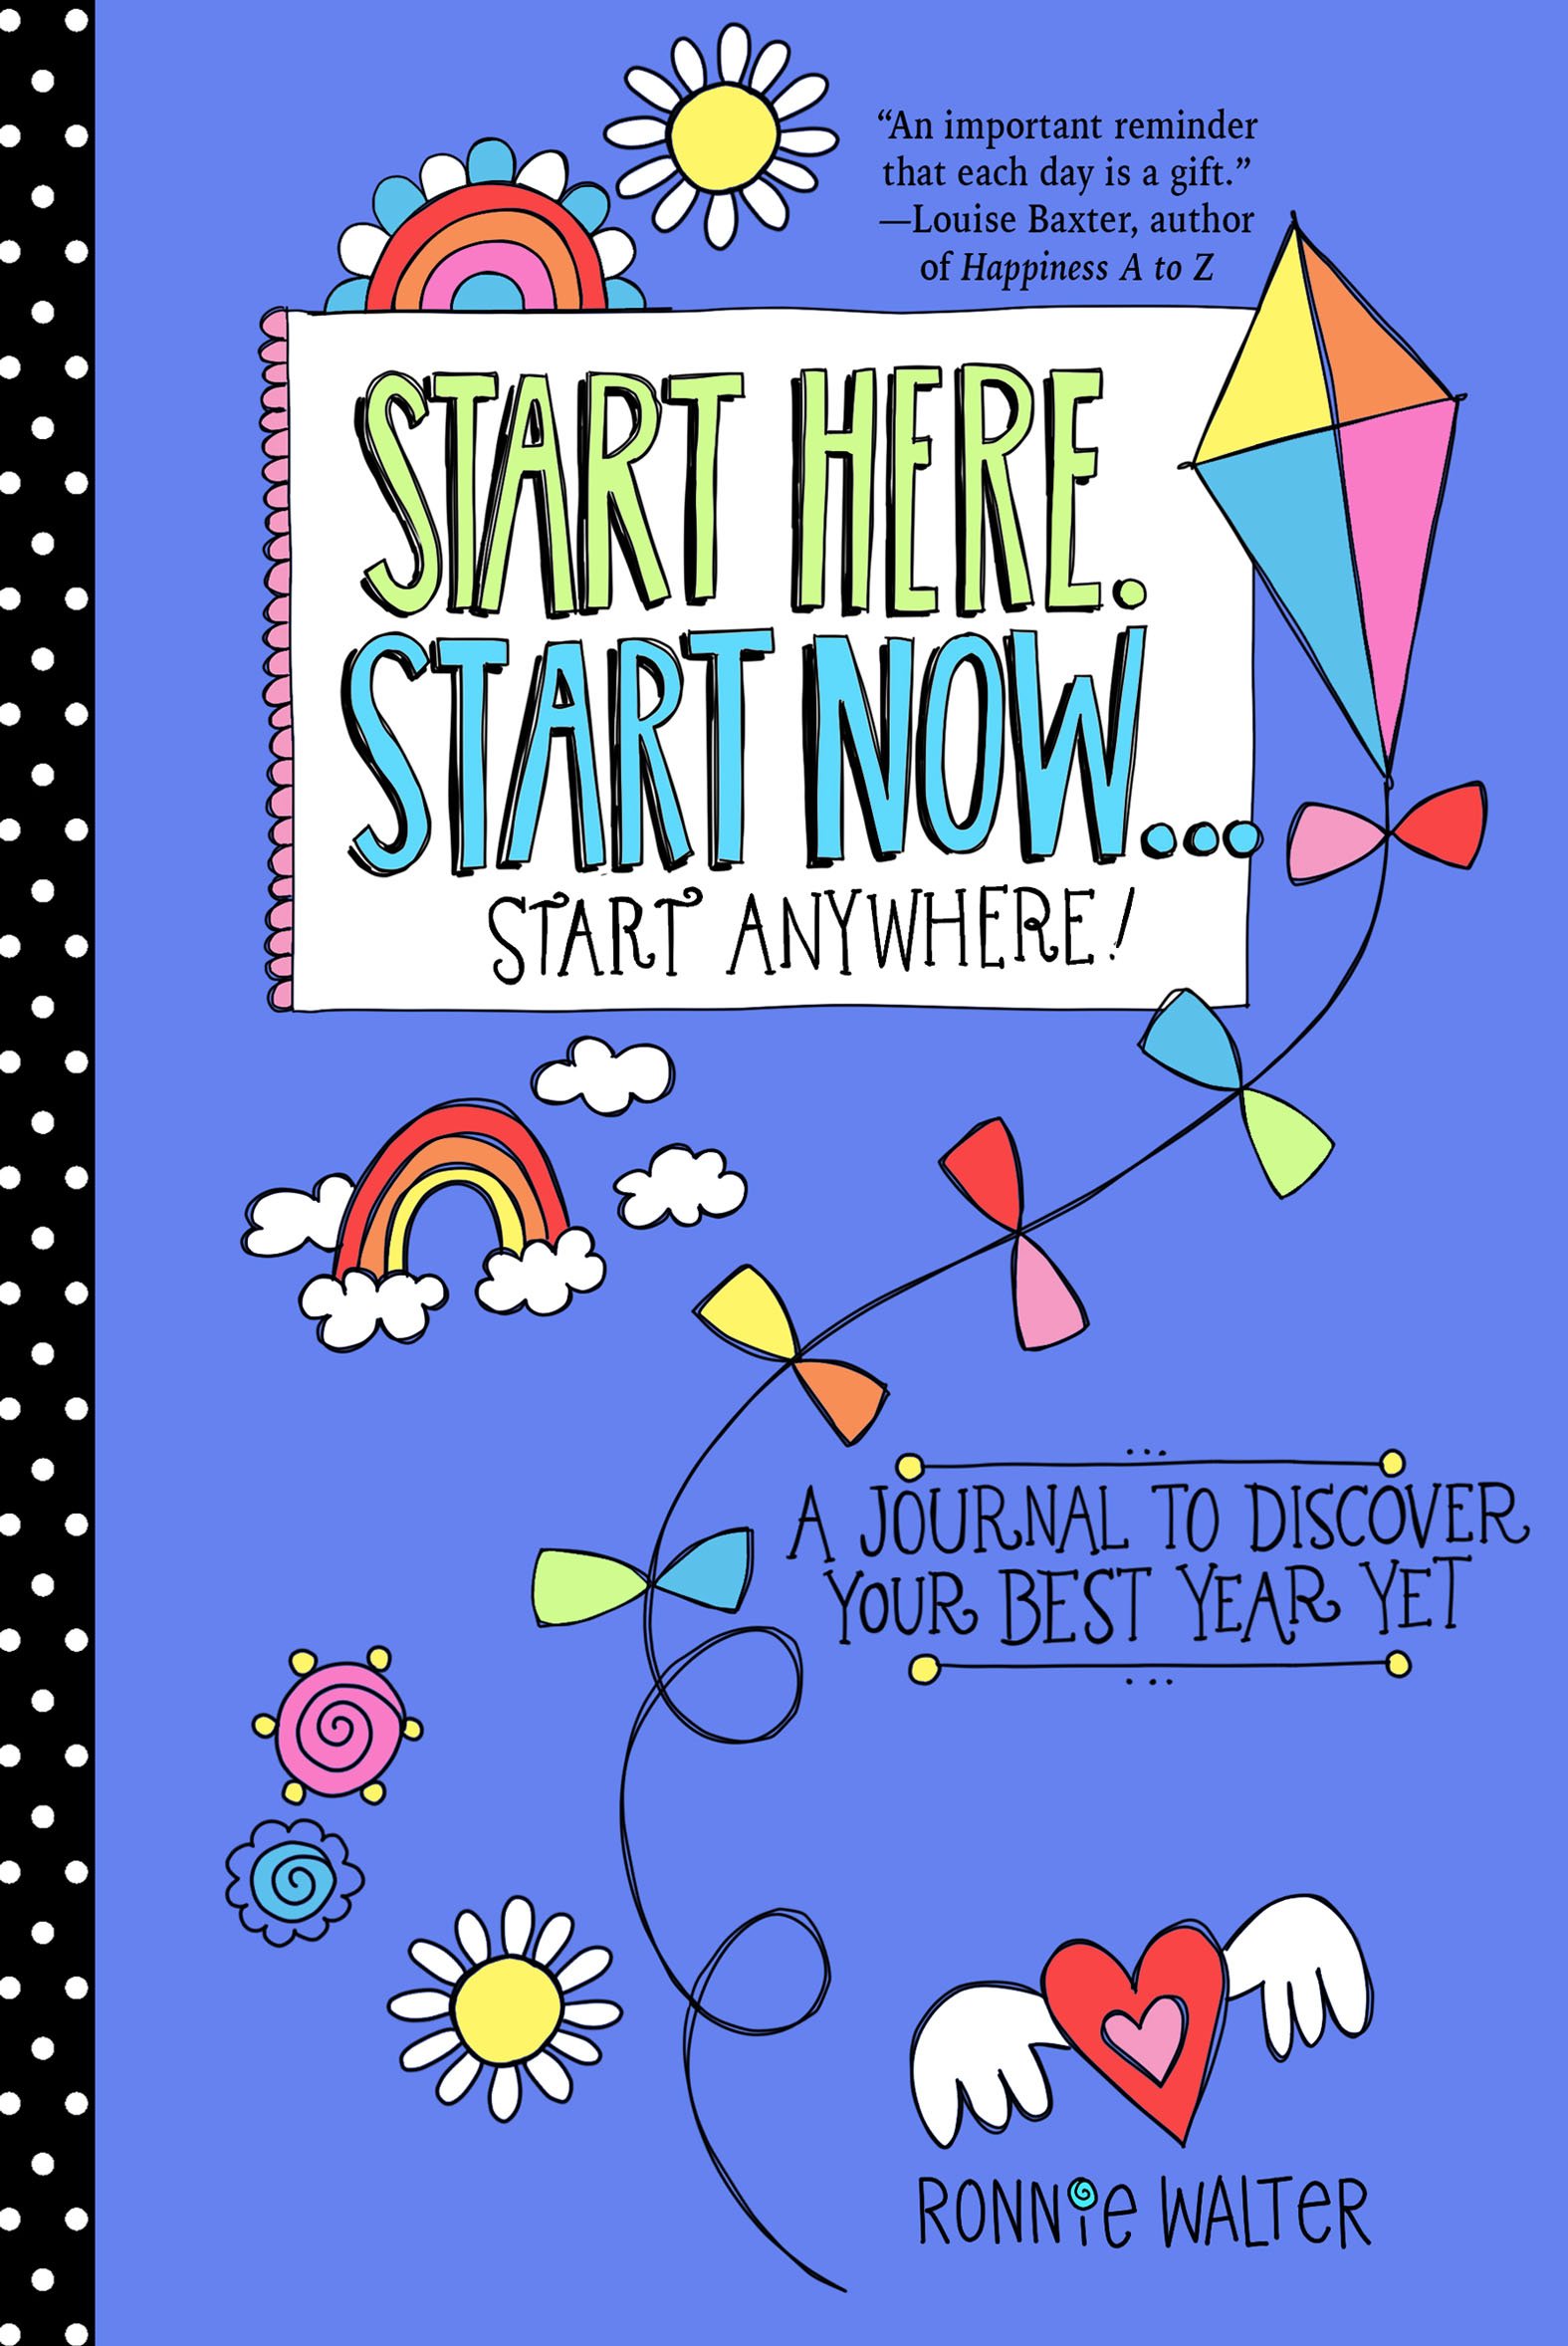 “An important reminder
that each day is a gift.”
—Louise Baxter, author
of Happiness A to Z
START HERE.
START NOW...
START ANYWHERE!
A JOURNAL TO DISCOVER
YOUR BEST YEAR YET
RONNie WALTeR